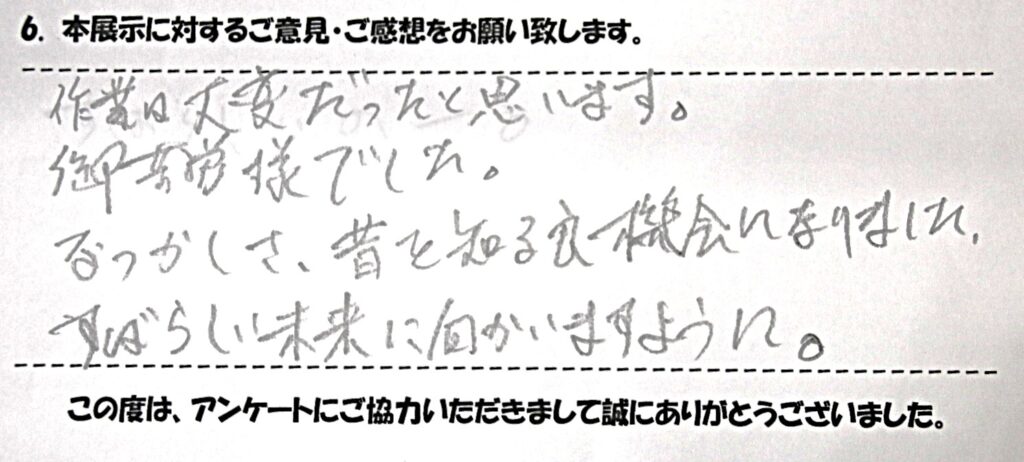 6. 本展示に対するご意見・ご感想をお願い致します。
作業は大変だったと思います。
御苦労様でした。
なつかしさ、昔を知る良い機会になりました。
すばらしい未来に向かいますように。
この度は、アンケートにご協力いただきまして誠にありがとうございました。